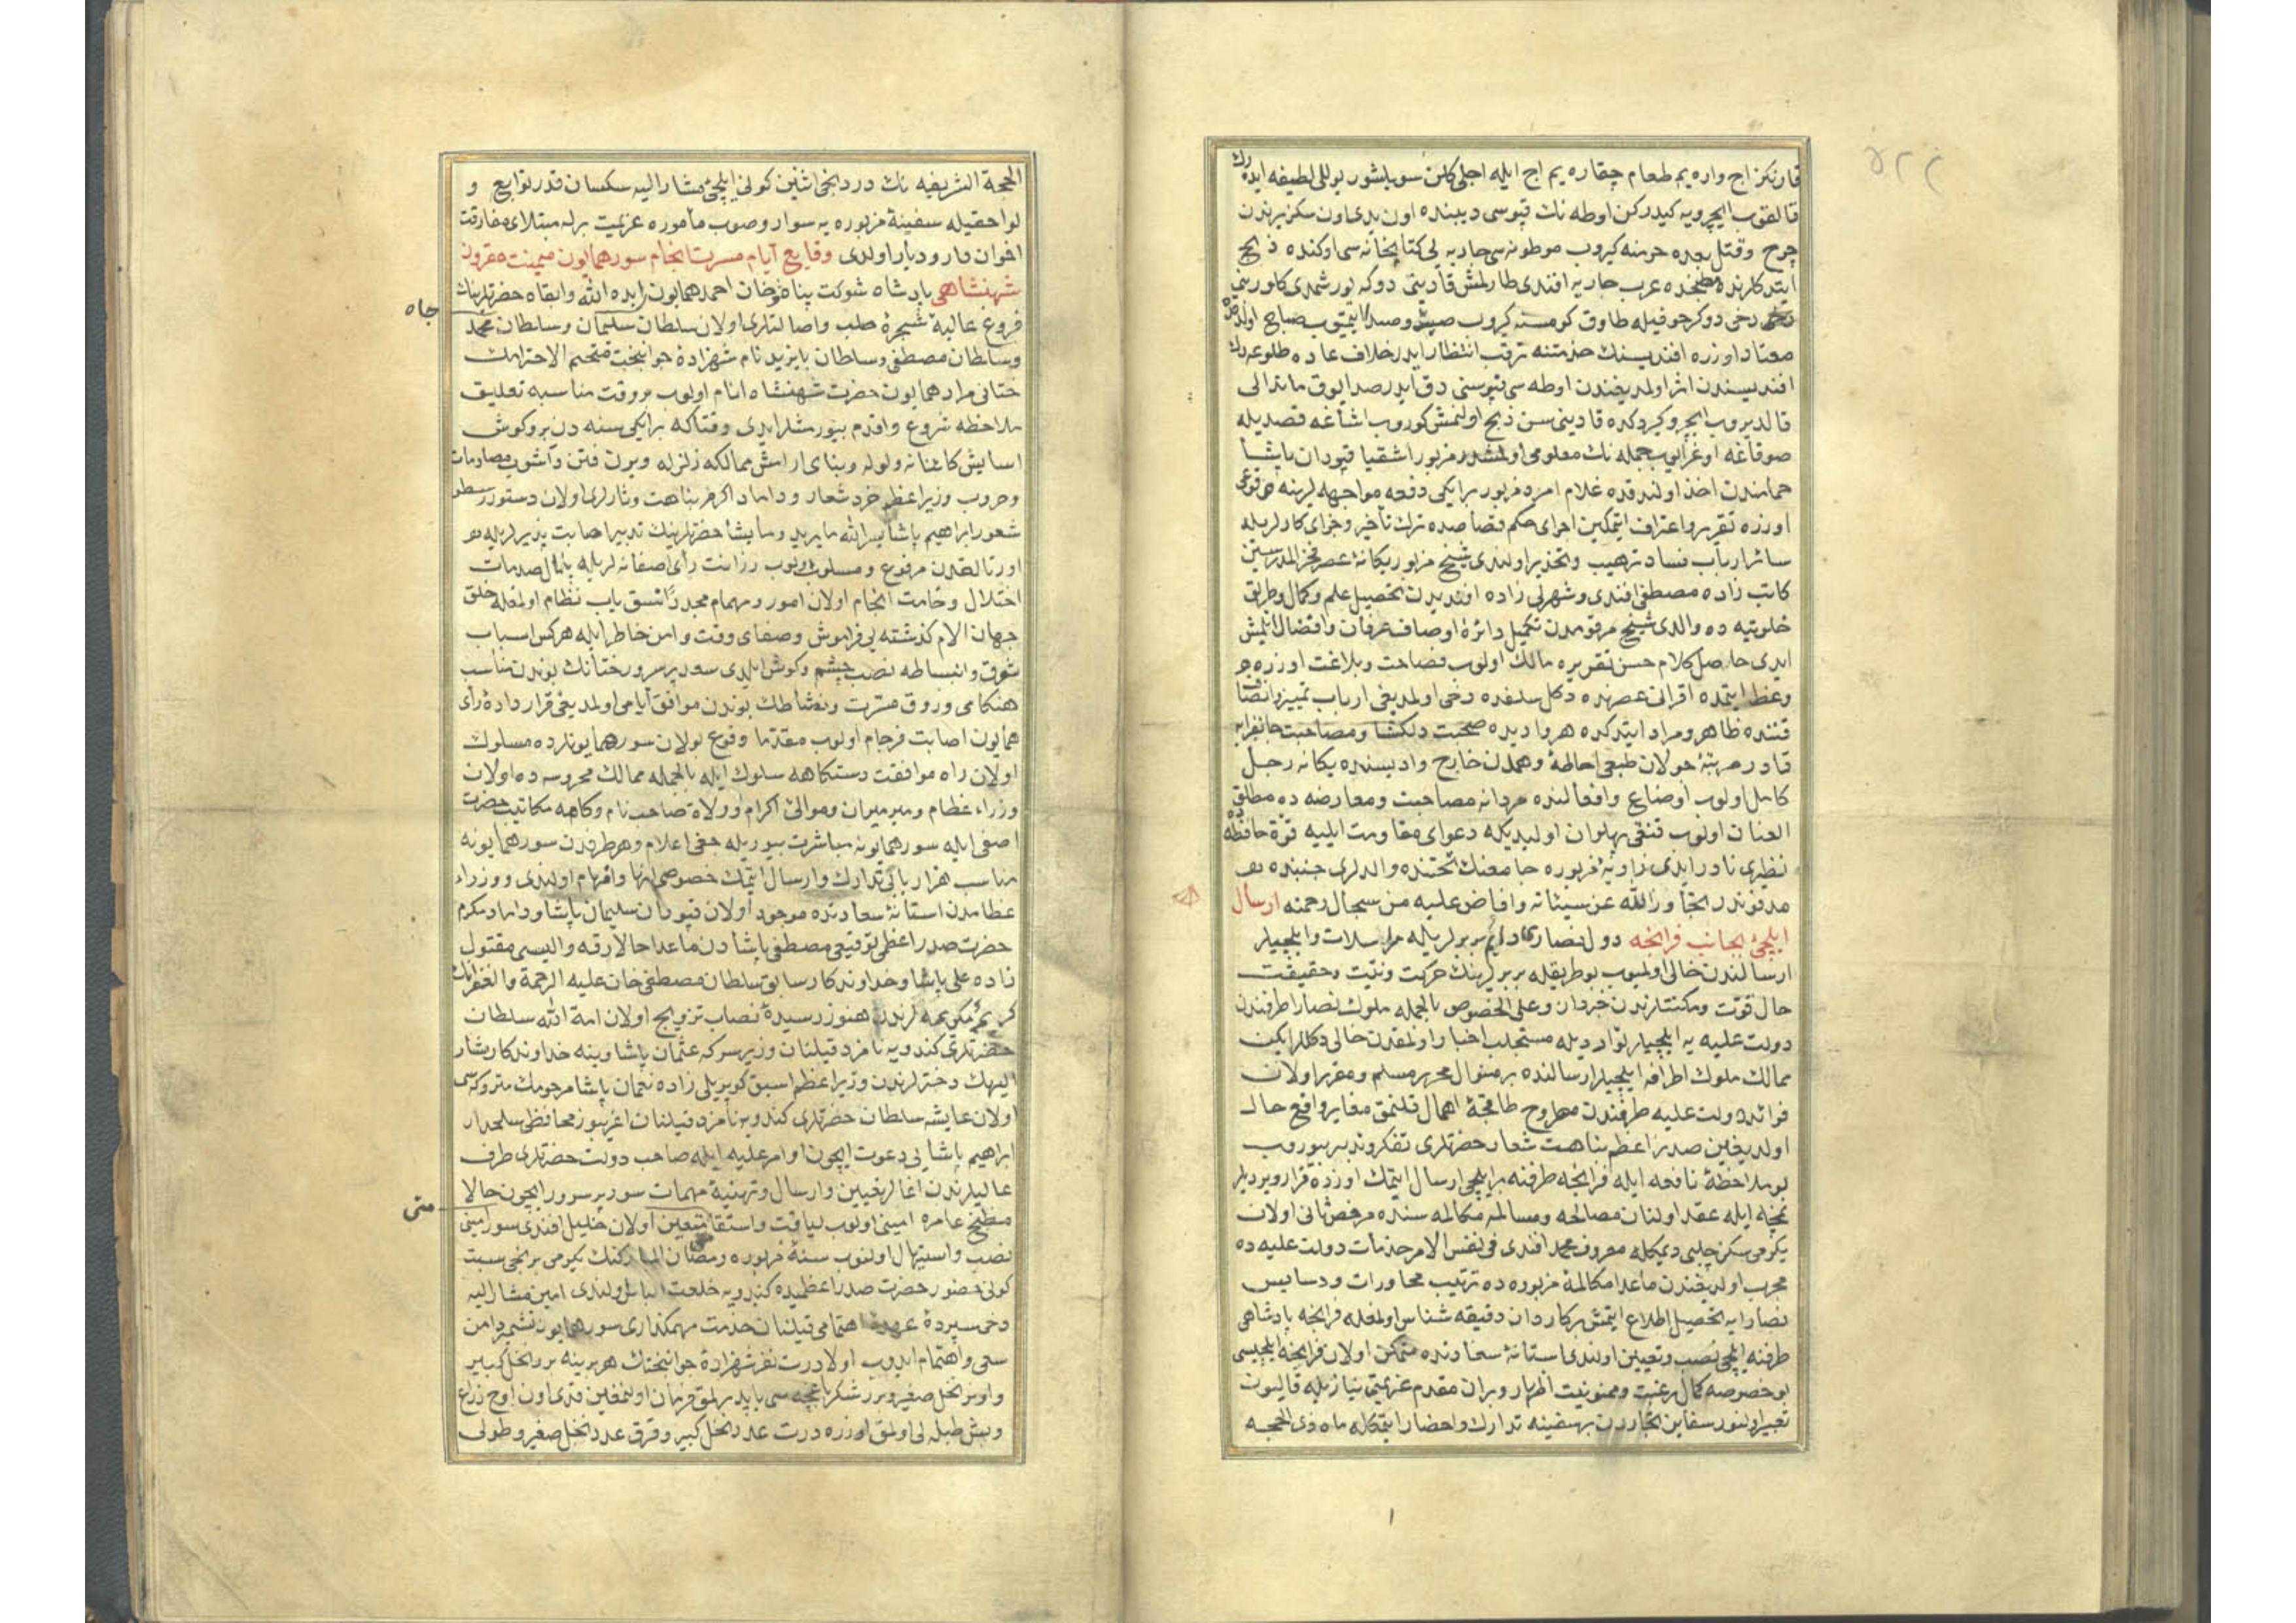 قارنکز اج واره یم طعام چقاره یم اج ایله اجلی کلن سویلشور بوللی لطیفه ایده رك
قالقوب ایچرویه کیدرکن اوطه نك قپوسی دیبنده اون یدی اون سکز یرندن
جرح وقتل بعده حرمنه کیروب جاریه لی کتابخانه سی اوکنده ذبح
ایتدکلرنده مطبخده عرب جاریه افندی طارلمش قادینی دوکه یورشمدی کلورینی
دخی دوکرخوفیله طاوق کومسنه کیروب یتیوب صباح اولدقده
معتاد اوزره افندیسنك خدمتنه ترقب انتظار ایدر خلاف عاده طلوعه دك
افندیسندن اثر اولمدیغندن اوطه سی قپوسنی دق ایدر صدا یوق
قالدیروب ایچرو کیردکده قادینی سن ذبح اولنمش کوروب اشاغه قصدیله
صوقاغه اوغرایوب جمله نك معلومی اولمشدر مزبور اشقیا قپودان پاشا
حمامندن اخذ اولندقده غلام امرد مزبور بر ایکی دفعه مواجهه لرینه وقوعی
اوزره تقریر واعتراف ایتمکین اجرای حکم قصاصده ترك تأخیر وجزای کارلریله
سائر ارباب فساد ترهیب وتحذیر اولندی شیخ مزبور یکانهٔ عصر فخر المدرسین
کاتب زاده مصطفی افندی وشهرلی زاده افندیدن تحصیل علم وکمال وطریق
خلوتیه ده والدی شیخ مرقومدن تکمیل دائرهٔ اوصاف عرفان وافضال ایلمش
ایدی حاصل کلام حسن تقریره مالك اولوب فصاحت وبلاغت اوزره
وعظ ایتمده اقرانی عصرنده دکل سلفده دخی اولمدیغی ارباب تمییز وانصاف
قتنده ظاهر ومراد ایتدکده هر وادیده صحبت دلکشا ومصاحبت جانفزایه
قادر مرتبهٔ جولان طبعی احاطهٔ وهمدن خارج وادیسنده یکانه رجل
کامل اولوب اوضاع وافعالنده مردانه مصاحبت ومعارضه ده مطلق
العنان اولوب قنغی پهلوان اولیدیکله دعوای مقاومت ایلیه قوة حافظه ده
نظیری نادر ایدی زاویهٔ مزبوره جامعنك تحتنده والدلری جنبنده
مدفوندر تجاوز الله عن سیئاته وافاض علیه من سجال رحمته ارسال
ایلچیٔ بجانب فرانچه دول نصارا دایم بربرلریله مراسلات وایلچیلر
ارسالندن خالی اولمیوب بو طریقله بربرلرینك حرکت ونیت وحقیقت
حال قوت ومکنتلرندن خبردار وعلی الخصوص بالجمله ملوك نصارا طرفندن
دولت علیه یه ایلچیلر توارد یله مستجلب اخبار اولمقدن خالی دکللر ایکن
ممالك ملوك اطرافه ایلچیلر ارسالنده بر منوال محرر مسلم ومقرر اولان
فوائد دولت علیه طرفندن مطروح طاقچهٔ اهمال قلنمق مغایر واقع حال
اولدیغین صدر اعظم نباهت شعار حضرتلری تفکر وتدبر بیوروب
بو ملاحظهٔ نافعه ایله فرانچه طرفنه بر ایلچی ارسال ایتمك اوزره قرار ویردیلر
نمچه ایله عقد اولنان مصالحه ومسالمه مکالمه سنده مرخص ثانی اولان
یکرمی سکز چلبی دیمکله معروف محمد افندی فی نفس الامر خدمات دولت علیه ده
مجرب اولدیغندن ماعدا مکالمهٔ مزبوره ده ترتیب محاورات ودسایس
نصارایه تحصیل اطلاع ایتمش برکاردان دقیقه شناس اولمغله فرانچه پادشاهی
طرفنه ایلچی نصب وتعیین اولندی استانهٔ سعادتده متمکن اولان فرانچه ایلچیسی
بو خصوصه کمال رغبت وممنونیت اظهار وبر ان مقدم عزیمتی نیازیله قالیون
تعبیر اولنور سفاین تجاردن بر سفینه تدارك واحضار ایتمکله ماه ذی الحجه
الحجة الشریفه نك دردنجی اثنین کونی ایلچیٔ مشار الیه سکسان قدر توابع و
لواحقیله سفینهٔ مزبوره یه سوار وصوب مأموره عزیمت برله مبتلای مفارقت
اخوان دار ودیار اولدی وقایع ایام مسرت انجام سور همایون میمنت مقرون
شهنشاهی پادشاه شوکت پناه خان احمد همایون زایده الله وابقاه حضرتلرینك
جاه
فروع عالیهٔ شجرهٔ صلب واصالتلری اولان سلطان سلیمان وسلطان محمد
وسلطان مصطفی وسلطان بایزید نام شهزادهٔ جوانبخت مفخم الاحترامك
ختانی مراد همایون حضرت شهنشاه انام اولوب بر وقت مناسبه تعلیق
ملاحظه شروع واقدم بیورمشلر ایدی وقتاکه بر ایکی سنه دن برو کوش
اسایش کائناته ولوله وبنای ارامش ممالکه زلزله ویرن فتن وآشوب مصادمات
وحروب وزیر اعظم خرد شعار وداماد اکرم نباهت وثارلری اولان دستور سطو
شعور ابراهیم پاشا یسر الله مایرید ومایشا حضرتلرینك تدبیر اصابت پذیرلریله
اورتالقدن مرفوع ومسلوب اولوب رزانت رأی اصفانه لریله پامال صدمات
اختلال وخامت انجام اولان امور ومهام مجدداً تنسق یاب نظام اولمغله خلق
جهان الام کذشته یی فراموش وصفای وقت وامن خاطر ایله هرکس اسباب
شوق وانبساطه نصب چشم وکوش ایلدی سور پرسرور ختانك بوندن مناسب
هنکامی وذوق مسرت ونشاطك بوندن موافق ایامی اولمدیغی قرار دادهٔ رأی
همایون اصابت فرجام اولوب مقدما وقوع بولان سور همایونلرده مسلوك
اولان راه موافقت دستکاهه سلوك ایله بالجمله ممالك محروسه ده اولان
وزراء عظام ومیرمیران وموالیٔ کرام وولاة صاحب نام وکاهه مکاتیب حضرت
اصفی ایله سور همایونه مباشرت بیوریله جغی اعلام وهر طرفدن سور همایونه
مناسب هزار تدارك وارسال ایتمك خصوصی انها وافهام اولندی ووزراء
عظامدن استانهٔ سعادتده موجود اولان قپودان سلیمان پاشا وداماد مکرم
حضرت صدر اعظمی توقیعی مصطفی پاشادن ماعدا حالا رقه والیسی مقتول
زاده علی پاشا وخداوندکار سابق سلطان مصطفی خان علیه الرحمة والغفرانك
کریمهٔ مکرمه لرندن هنوز رسیدهٔ نصاب تزویج اولان امة الله سلطان
حضرتلری کندویه نامزد قیلنان وزیر سرکه عثمان پاشا وینه خداوندکار مشار
الیهك دخترلرندن وزیر اعظم اسبق کوپریلی زاده نعمان پاشا مرحومك متروکه سی
اولان عایشه سلطان حضرتلری کندویه نامزد قیلنان اغریبوز محافظی سلحدار
ابراهیم پاشایی دعوت ایچون اوامر علیه ایله صاحب دولت حضرتلری طرف
عالیلرندن اغالر تعیین وارسال وتهیئهٔ مهمات سور پرسرور ایچون حالا
متی
مطبخ عامره امینی اولوب لیاقت واستقامتی متعین اولان خلیل افندی سور امینی
نصب واستیهال اولنوب سنهٔ مزبوره رمضان المبارکنك یکرمی برنجی سبت
کونی حضور حضرت صدر اعظمیده کندویه خلعت الباس اولندی امین مشار الیه
دخی سپردهٔ عهدهٔ اهتمامی قیلنان خدمت مهمکذاری سور همایون تشمیر دامن
سعی واهتمام ایدوب اولا درت نفر شهزادهٔ جوانبختك هر برینه برر نخل کبیر
واونر نخل صغیر وبرر شکر باغچه سی یاپدیرلمق فرمان اولنمغین قدی اون اوچ ذراع
وبش طبله لی اولمق اوزره درت عدد نخل کبیر وقرق عدد نخل صغیر وطولی